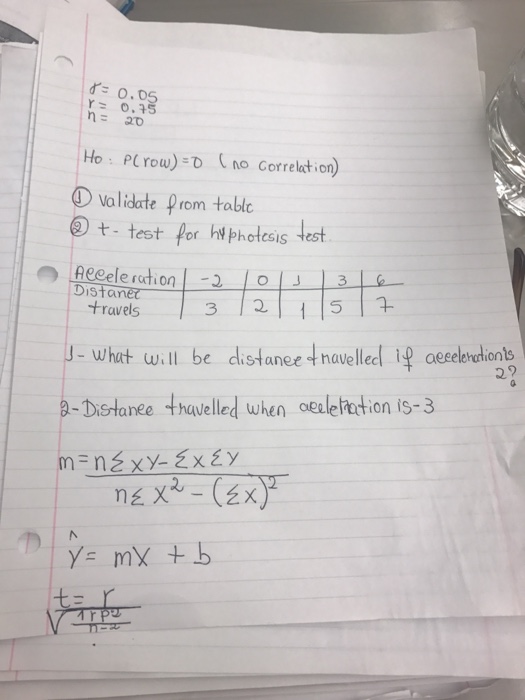 γ= 0.05
r= 0.75
n= 20
Ho: P(row)=0 (no correlation)
① validate from table
② t-test for hyphotesis test
Acceleration -2 0 1 3 6
Distance travels 3 2 1 5 7
1- What will be distance travelled if accelerationis 2?
2-Distance travelled when acceleration is -3
m= nΣxy-ΣxΣy
nΣx² - (Σx)²
ŷ= mx + b
t= r
√
n-2